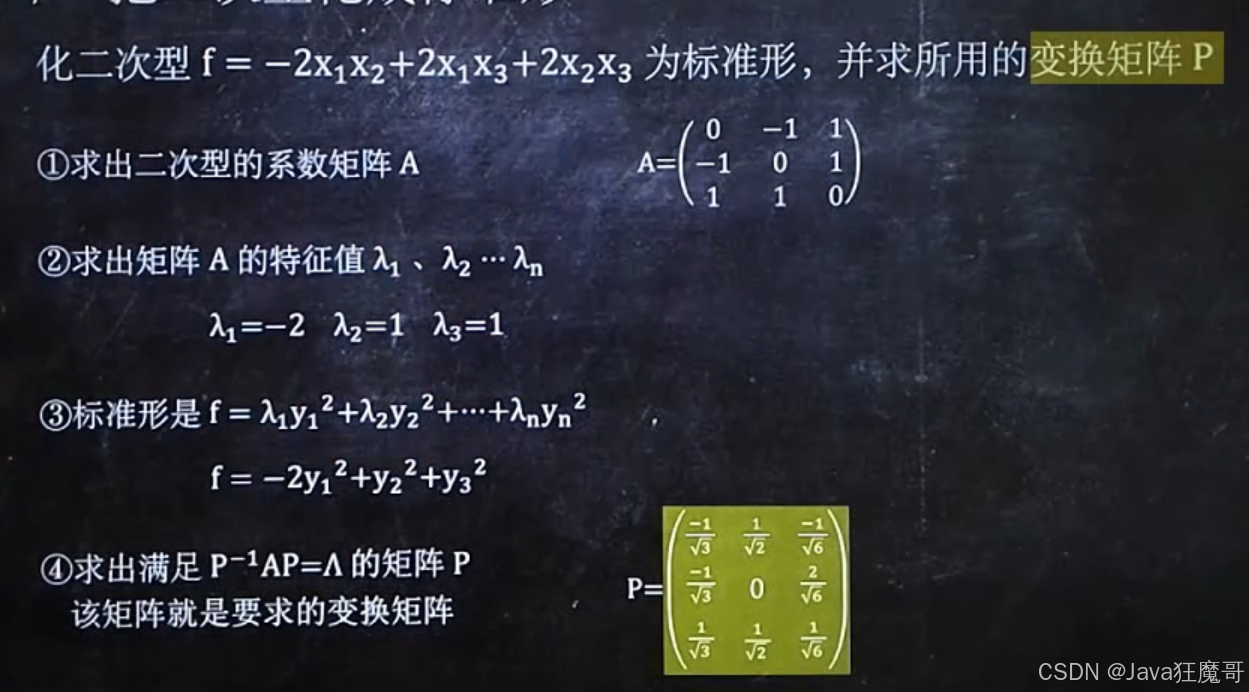 化二次型 f = −2x₁x₂+2x₁x₃+2x₂x₃ 为标准形，并求所用的变换矩阵 P
①求出二次型的系数矩阵 A
A=
0 −1 1
−1 0 1
1 1 0
②求出矩阵 A 的特征值 λ₁ 、λ₂ ⋯ λₙ
λ₁=−2 λ₂=1 λ₃=1
③标准形是 f = λ₁y₁²+λ₂y₂²+⋯+λₙyₙ²
f = −2y₁²+y₂²+y₃²
④求出满足 P⁻¹AP=Λ 的矩阵 P
该矩阵就是要求的变换矩阵
P=
−1/√3 1/√2 −1/√6
−1/√3 0 2/√6
1/√3 1/√2 1/√6
CSDN @Java狂魔哥